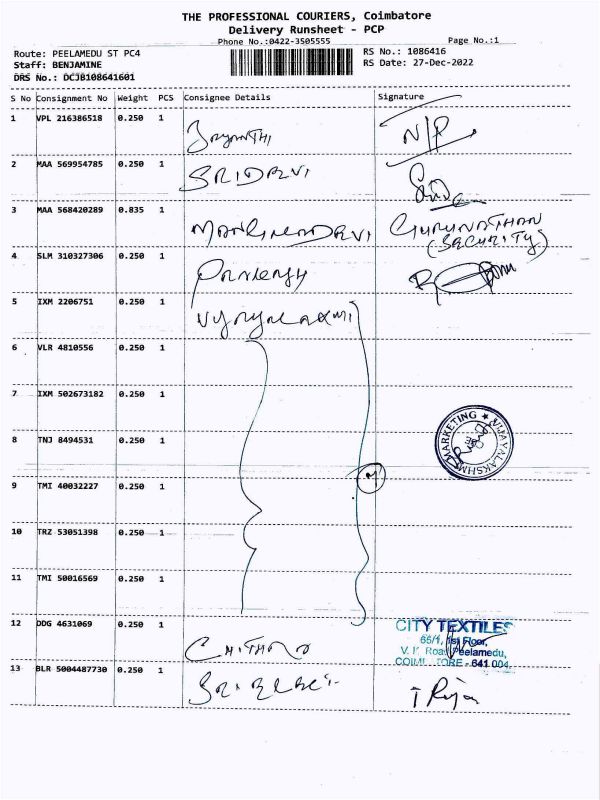 THE PROFESSIONAL COURIERS, Coimbatore
Delivery Runsheet - PCP
Phone No.:0422-3505555 Page No.:1
Route: PEELAMEDU ST PC4 RS No.: 1086416
Staff: BENJAMINE RS Date: 27-Dec-2022
DRS No.: DCJB108641601
S No Consignment No Weight PCS Consignee Details Signature
1 VPL 216386518 0.250 1 N/P
2 MAA 569954785 0.250 1 SRIDEVI
3 MAA 568420289 0.835 1 GURUNATHAN
(SECURITY)
4 SLM 310327306 0.250 1
5 IXM 2206751 0.250 1
6 VLR 4810556 0.250 1
7 IXM 502673182 0.250 1
8 TNJ 8494531 0.250 1
VIJAYALAKSHMI MARKETING
9 TMI 40032227 0.250 1 7
10 TRZ 53051398 0.250 1
11 TMI 50016569 0.250 1
12 DDG 4631069 0.250 1 CHITHRA
CITY TEXTILES
65/1, 1st Floor,
V.K. Road, Peelamedu,
COIMBATORE - 641 004.
13 BLR 5004487730 0.250 1